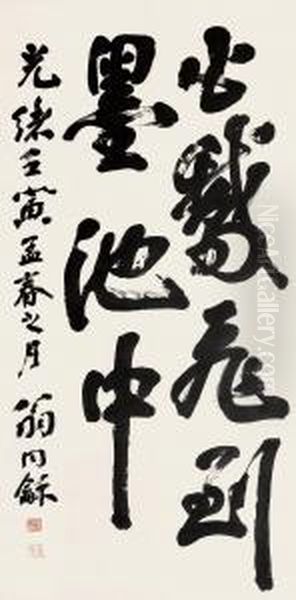 白鵞飛到
墨池中
光緒壬寅孟春之月 翁同龢
NiceArtGallery.com